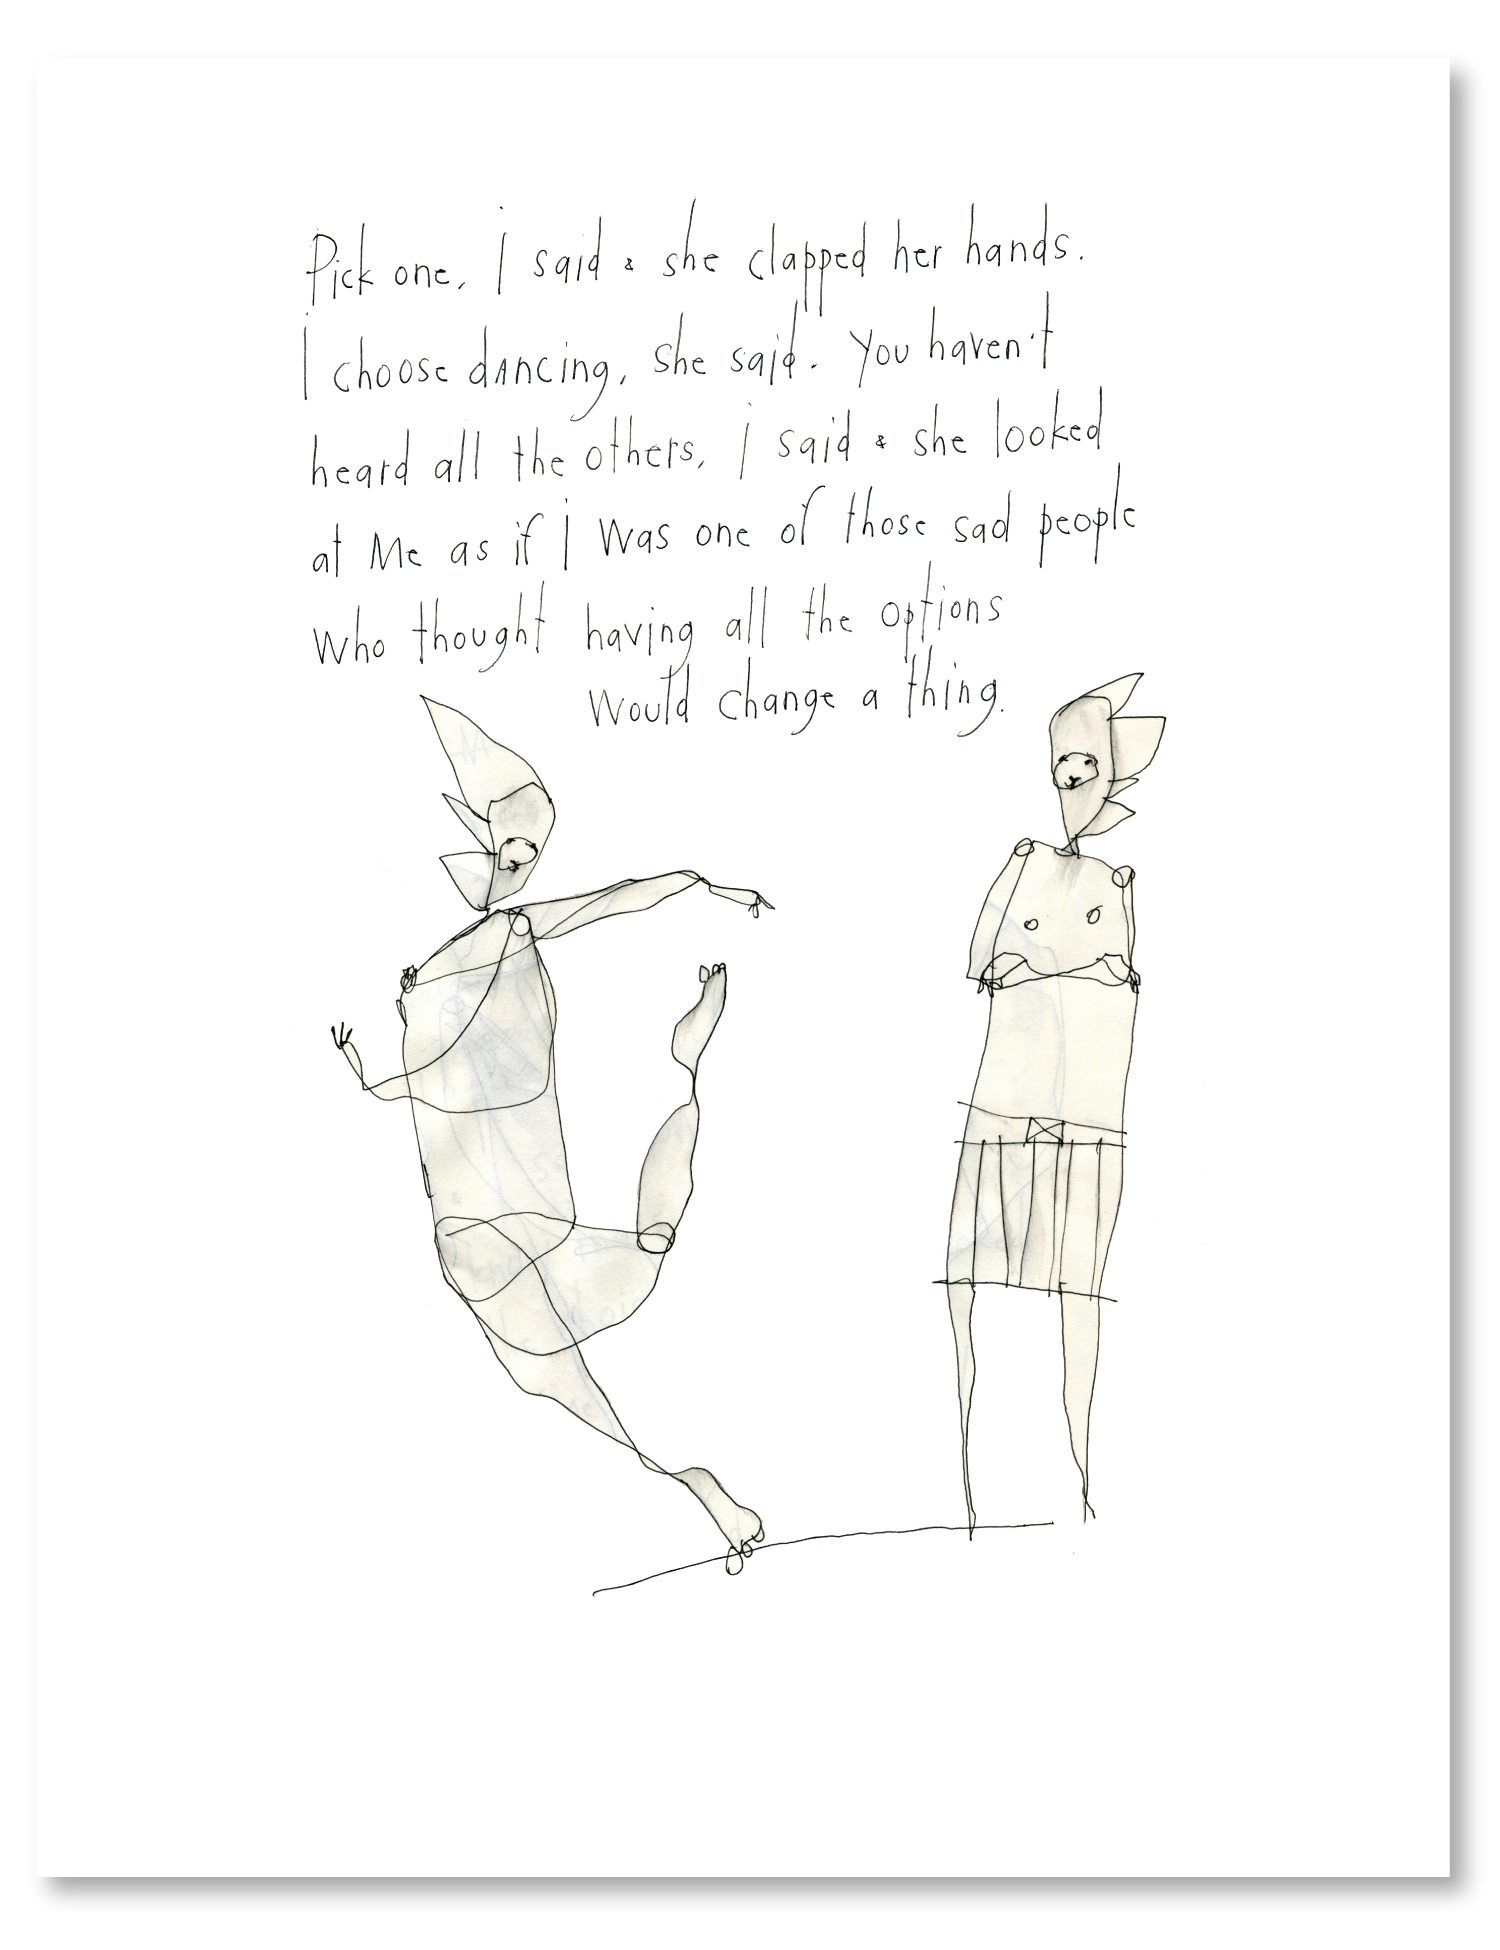 Pick one, I said & she clapped her hands.
I choose dancing, she said. You haven't
heard all the others, I said & she looked
at Me as if I was one of those sad people
who thought having all the options
would change a thing.